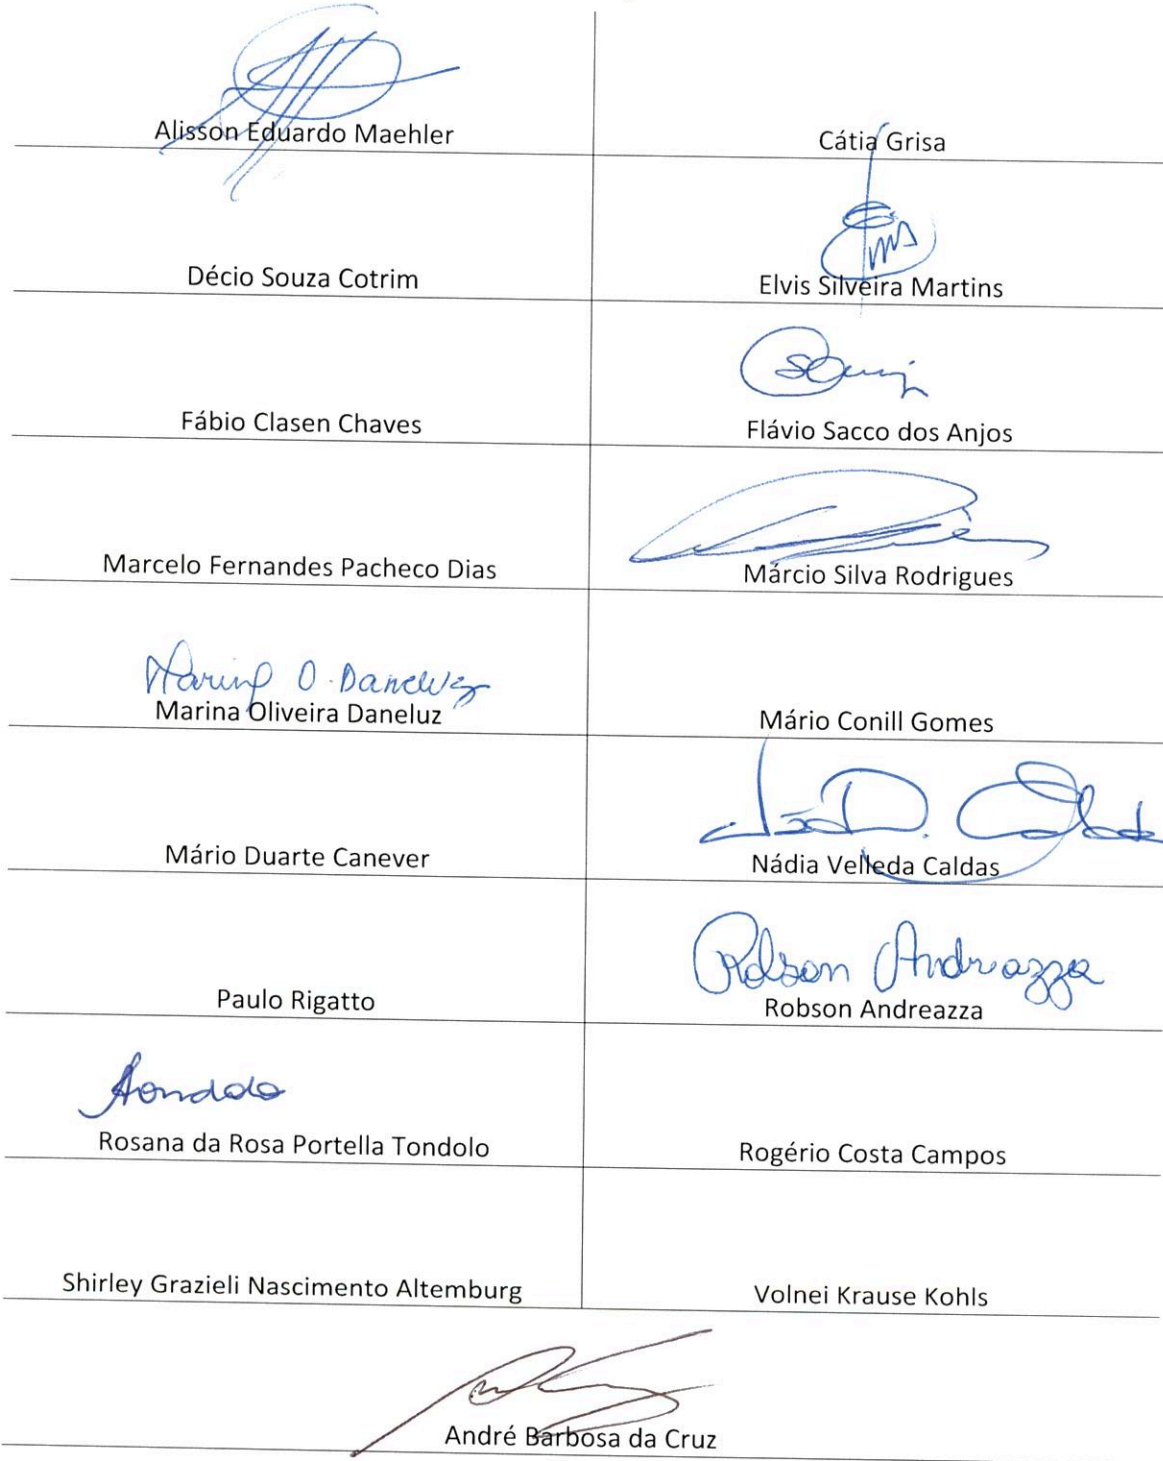 Alisson Eduardo Maehler
Cátia Grisa
Décio Souza Cotrim
Elvis Silveira Martins
Fábio Clasen Chaves
Flávio Sacco dos Anjos
Marcelo Fernandes Pacheco Dias
Márcio Silva Rodrigues
Marina O. Daneluz
Marina Oliveira Daneluz
Mário Conill Gomes
Mário Duarte Canever
Nádia Velleda Caldas
Paulo Rigatto
Robson Andreazza
Robson Andreazza
Rosana da Rosa Portella Tondolo
Rogério Costa Campos
Shirley Grazieli Nascimento Altemburg
Volnei Krause Kohls
André Barbosa da Cruz